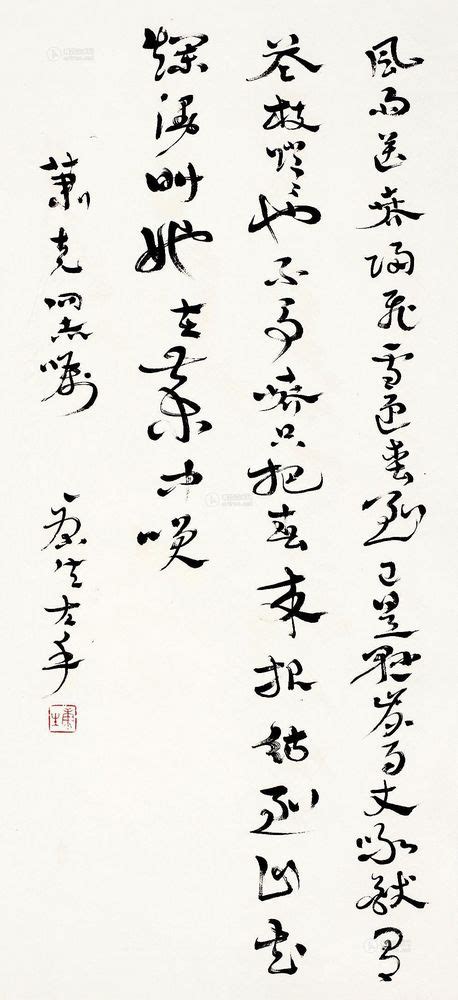 風雨送春歸飛雪迎春到已是懸崖百丈冰猶有
花枝俏々也不爭春只把春來報待到山花
爛漫時她在叢中笑
蕭克同志囑
康生左手
康生